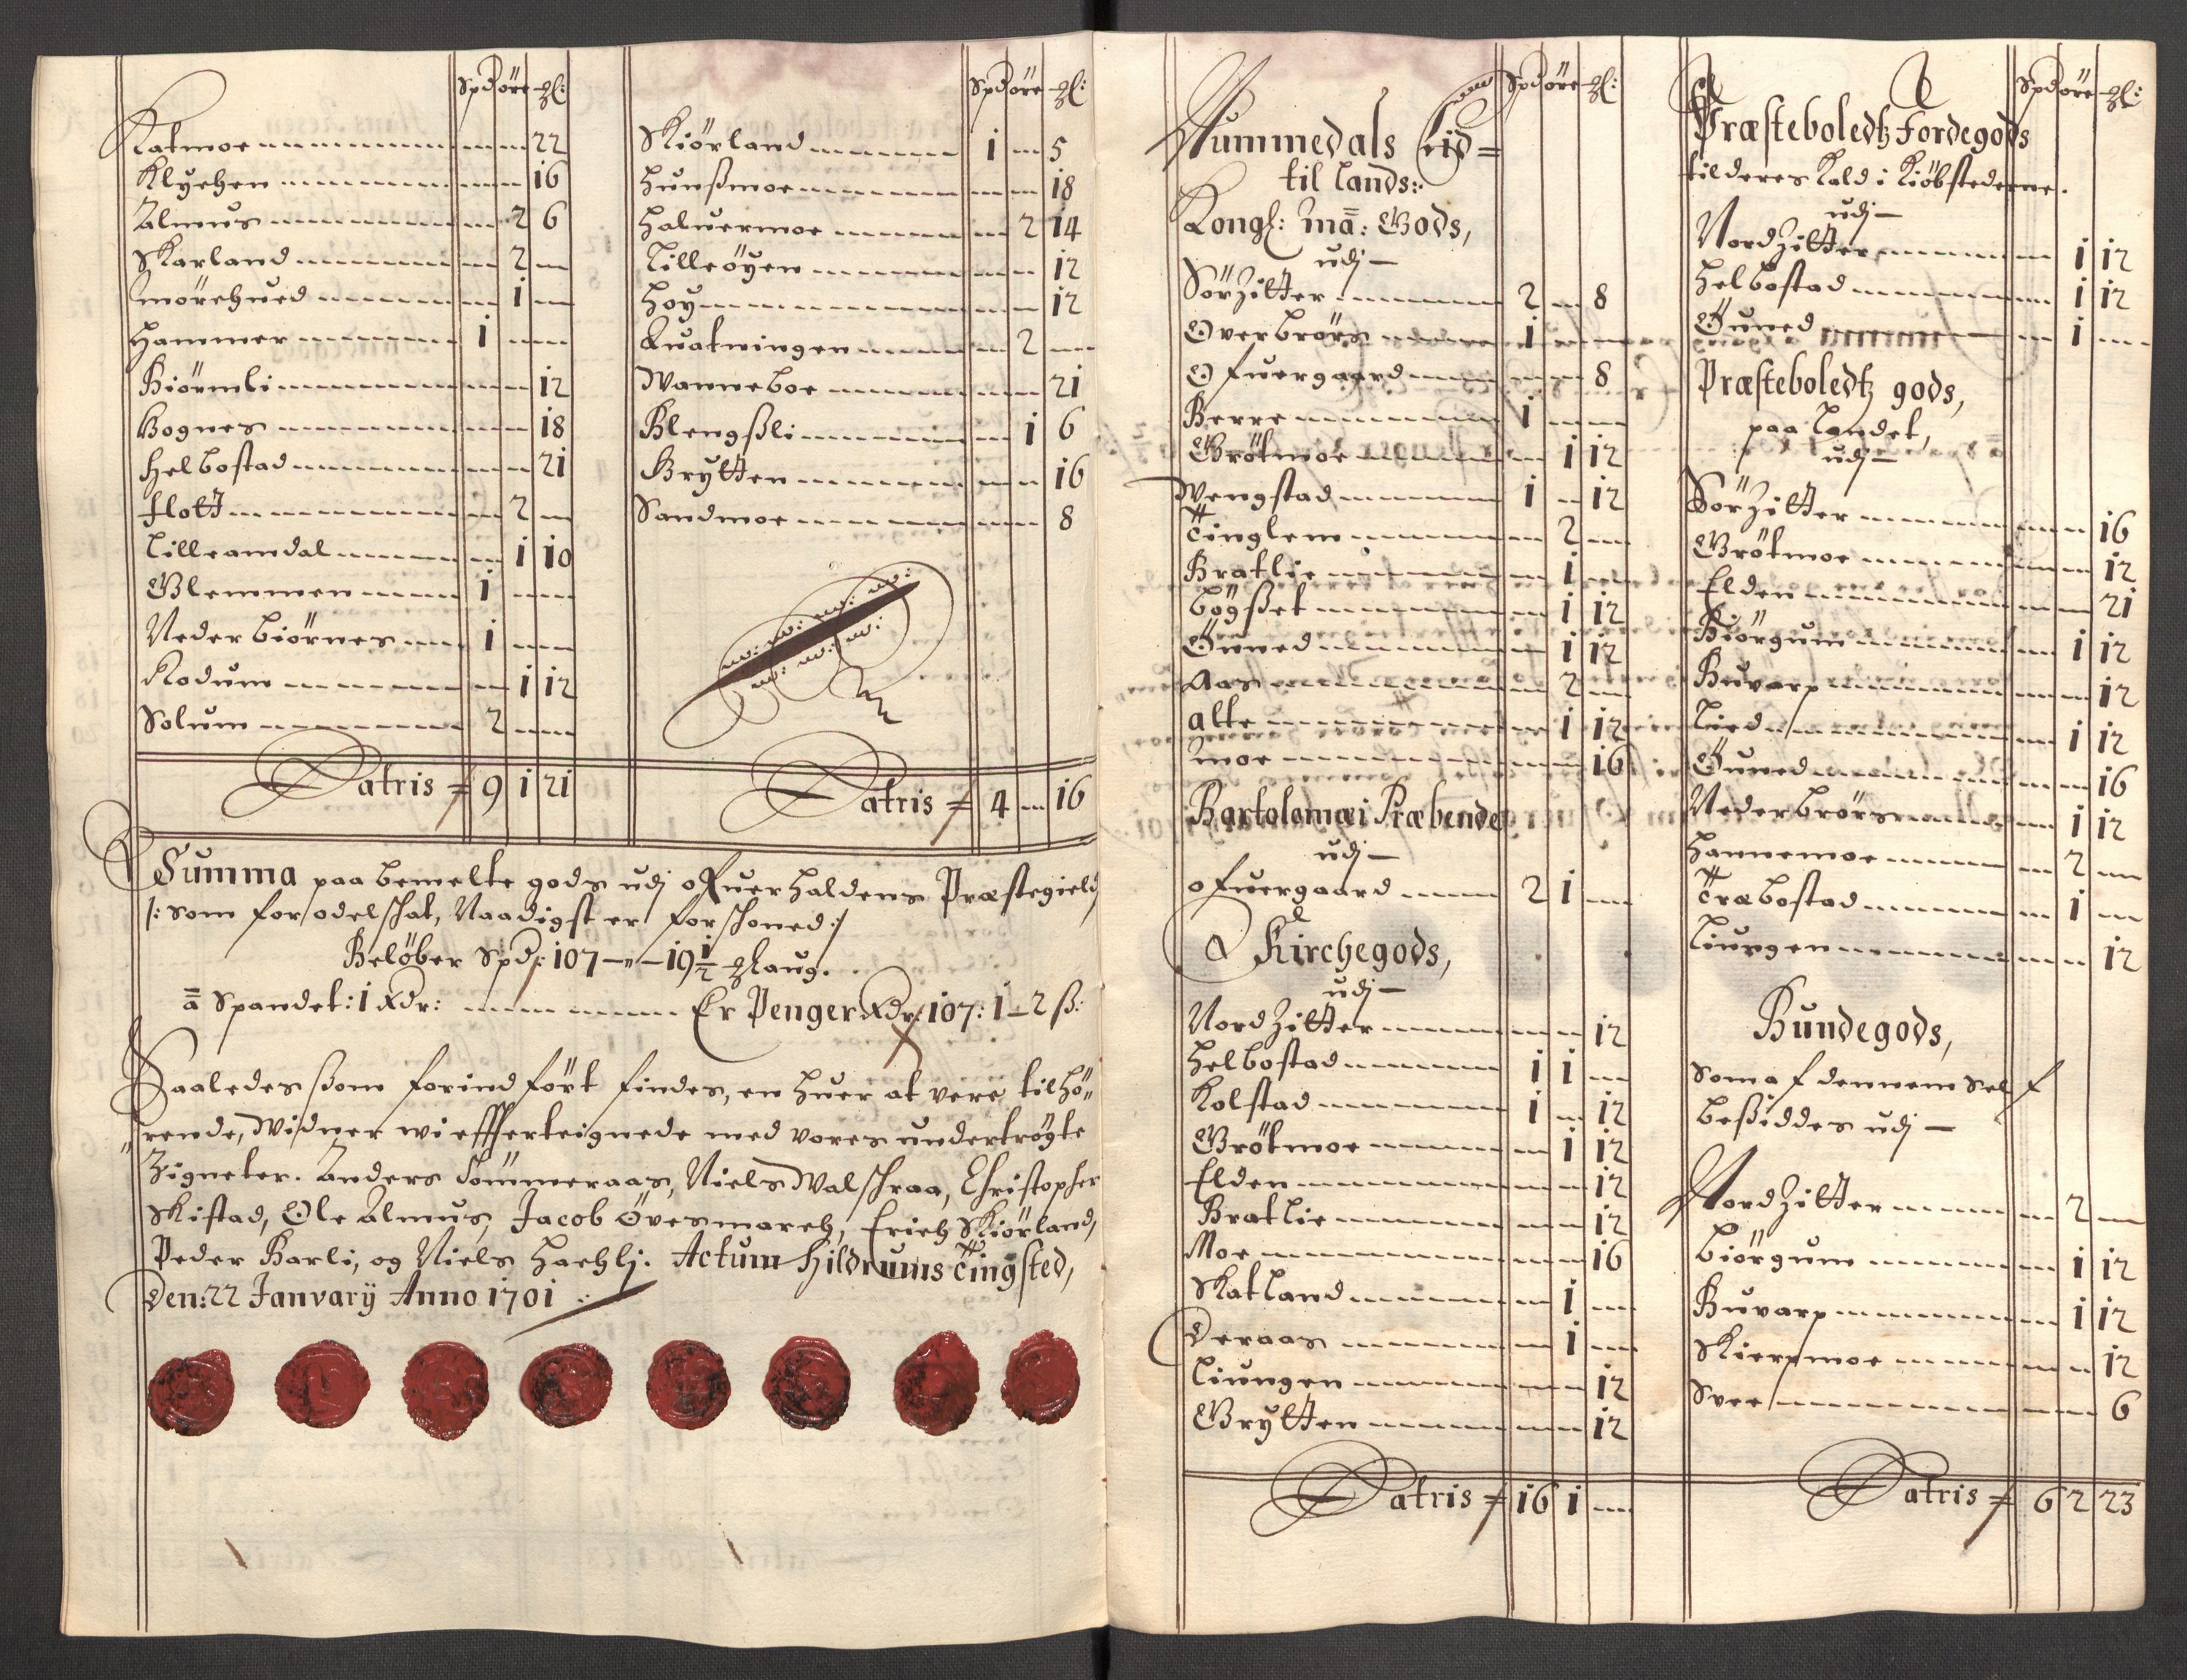 Spd öre ȝl:
Katmoe 22
Klychen 16
Almus 2 6
Skarland 2
Mörchued 1
Hammer 1
Biörmli 12
Bognes 18
Helbostad 21
Flott 2
Lilleamdal 1 10
Glemmen 1
Nederbiörnes 1
Rodum 1 12
Solum 2
Latris 9 1 21
Spd öre ȝl:
Skiörland 1 5
Hunßmoe 18
Haluermoe 2 14
Lilleöyen 12
Hoy 12
Quatningen 2
Wanneboe 21
Blengßli 1 6
Grytten 16
Sandmoe 8
Latris 4 16
Summa paa bemelte gods udj ofuer Haldens Præstegield
/: som for odelschat, Naadigst er forschoned :/
Beløber Spd: 107 - " - 19 1/2 ȝl aug.
a Spandet: 1 Rdr: Er Penger Rdr: 107: 1 - 2 ß:
Saaledes ßom forindfört findes, en huer at vere tilhö,,
,,rende, widner wi effterteignede med vores undertrögte
Zigneter. Anders Sommeraas, Niels Walschraa, Christopher
Skistad, Ole Almus, Jacob Övesmarch, Erich Skiörland,
Peder Barli, og Niels Hachlj. Actum Hildrums Tingsted,
Den: 22 Janvarij Anno 1701
Spd öre ȝl:
Nummedals Eid=
til lands:
Kongl: Ma: Gods,
udj -
Sörzitter 2 8
Overbrörs 1
Ofuergaard 8
Berre 1
Grötmoe 1 12
Wengstad 1 12
Tinglem 2
Bratlie 1
Bögßet 1 12
Önned 1 12
Aas 2
Alte 1 12
Moe 16
Bartolomæi Præbende
udj -
Ofuergaard 2 1
Kirchegods,
udj -
Nordzitter 12
Helbostad 1 1
Kolstad 1 12
Grötmoe 1 12
Elden 12
Bratlie 12
Moe 16
Skatland 1
Deraas 1
Liungen 12
Grytten 12
Latris 16 1
Spd öre ȝl:
Præsteboledtz Fordegods
til deres Kald i Kiöbstederne.
udj -
Nordzitter 1 12
Helbostad 1 12
Öuned 1
Præsteboledtz gods,
paa Landet,
udj -
Sörzitter 16
Grötmoe 12
Elden 21
Biörgum 1 12
Buvarp 12
Lied 1 12
Öuned 16
Nederbrörs 1 12
Hannemoe 2
Træbostad 1
Liungen 12
Bundegods,
Som af dennem Self
beßiddes udj -
Nordzitter 2
Biörgum 1 12
Buvarp 1 12
Skierpmoe 12
Svee 6
Latris 6 2 23